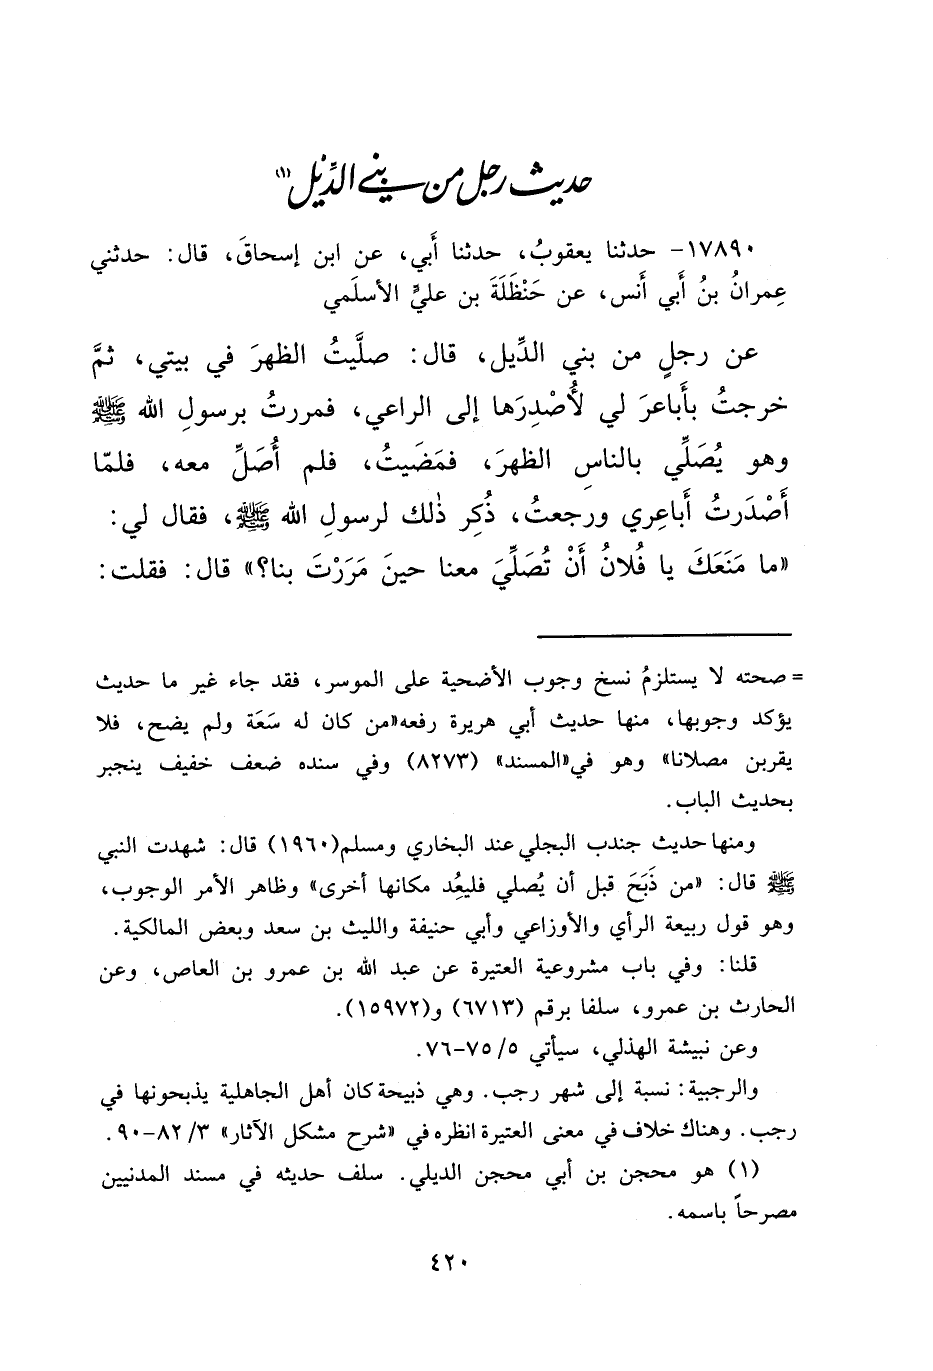 حديث رجل من بني الدِّيْل(١)
١٧٨٩٠- حدثنا يعقوبُ، حدثنا أَبي، عن ابن إسحاقَ، قال: حدثني
عِمرانُ بنُ أَبي أَنس، عن حَنْظَلَةَ بن عليٍّ الأسلَمي
عن رجلٍ من بني الدِّيل، قال: صلَّيتُ الظهرَ في بيتي، ثمَّ
خرجتُ بأَباعرَ لي لأُصْدِرَها إلى الراعي، فمررتُ برسولِ الله ﷺ
وهو يُصَلِّي بالناسِ الظهرَ، فمَضَيتُ، فلم أُصَلِّ معه، فلمّا
أَصْدَرتُ أَباعِري ورجعتُ، ذُكِر ذٰلك لرسولِ الله ﷺ، فقال لي:
«ما مَنَعَكَ يا فُلانُ أَنْ تُصَلِّيَ معنا حينَ مَرَرْتَ بنا؟» قال: فقلت:
= صحته لا يستلزمُ نسخ وجوب الأضحية على الموسر، فقد جاء غير ما حديث
يؤكد وجوبها، منها حديث أبي هريرة رفعه«من كان له سَعَة ولم يضح، فلا
يقربن مصلانا» وهو في«المسند» (٨٢٧٣) وفي سنده ضعف خفيف ينجبر
بحديث الباب.
ومنها حديث جندب البجلي عند البخاري ومسلم(١٩٦٠) قال: شهدت النبي
ﷺ قال: «من ذَبَحَ قبل أن يُصلي فليعِد مكانها أخرى» وظاهر الأمر الوجوب،
وهو قول ربيعة الرأي والأوزاعي وأبي حنيفة والليث بن سعد وبعض المالكية.
قلنا: وفي باب مشروعية العتيرة عن عبد الله بن عمرو بن العاص، وعن
الحارث بن عمرو، سلفا برقم (٦٧١٣) و(١٥٩٧٢).
وعن نبيشة الهذلي، سيأتي ٥/ ٧٥-٧٦.
والرجبية: نسبة إلى شهر رجب. وهي ذبيحة كان أهل الجاهلية يذبحونها في
رجب. وهناك خلاف في معنى العتيرة انظره في «شرح مشكل الآثار» ٣/ ٨٢-٩٠.
(١) هو محجن بن أبي محجن الديلي. سلف حديثه في مسند المدنيين
مصرحاً باسمه.
٤٢٠